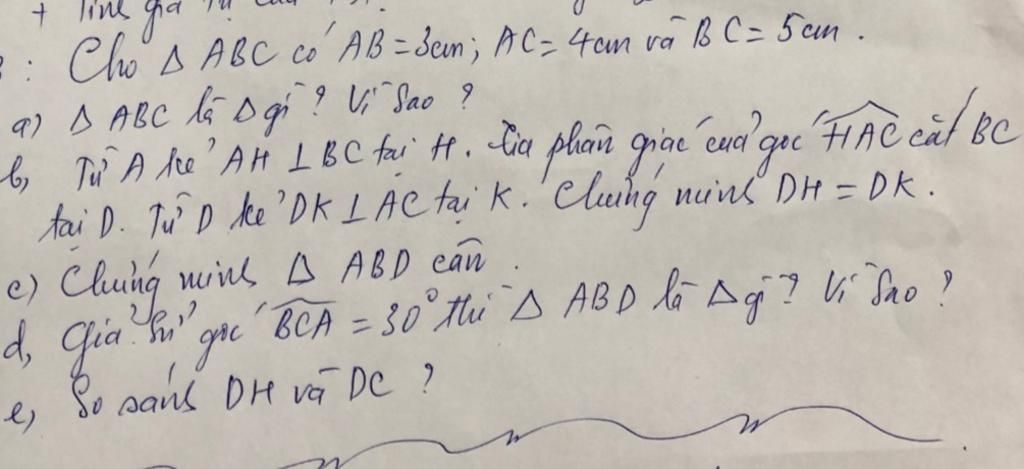 + Tính giá trị của
: Cho Δ ABC có AB = 3cm; AC = 4cm và BC = 5cm.
a) Δ ABC là Δ gì? Vì Sao?
b, Từ A kẻ AH ⊥ BC tại H. Tia phân giác của góc HAC cắt BC
tại D. Từ D kẻ DK ⊥ AC tại K. Chứng minh DH = DK.
c) Chứng minh Δ ABD cân.
d, Giả sử góc BCA = 30° thì Δ ABD là Δ gì? Vì Sao?
e, So sánh DH và DC?